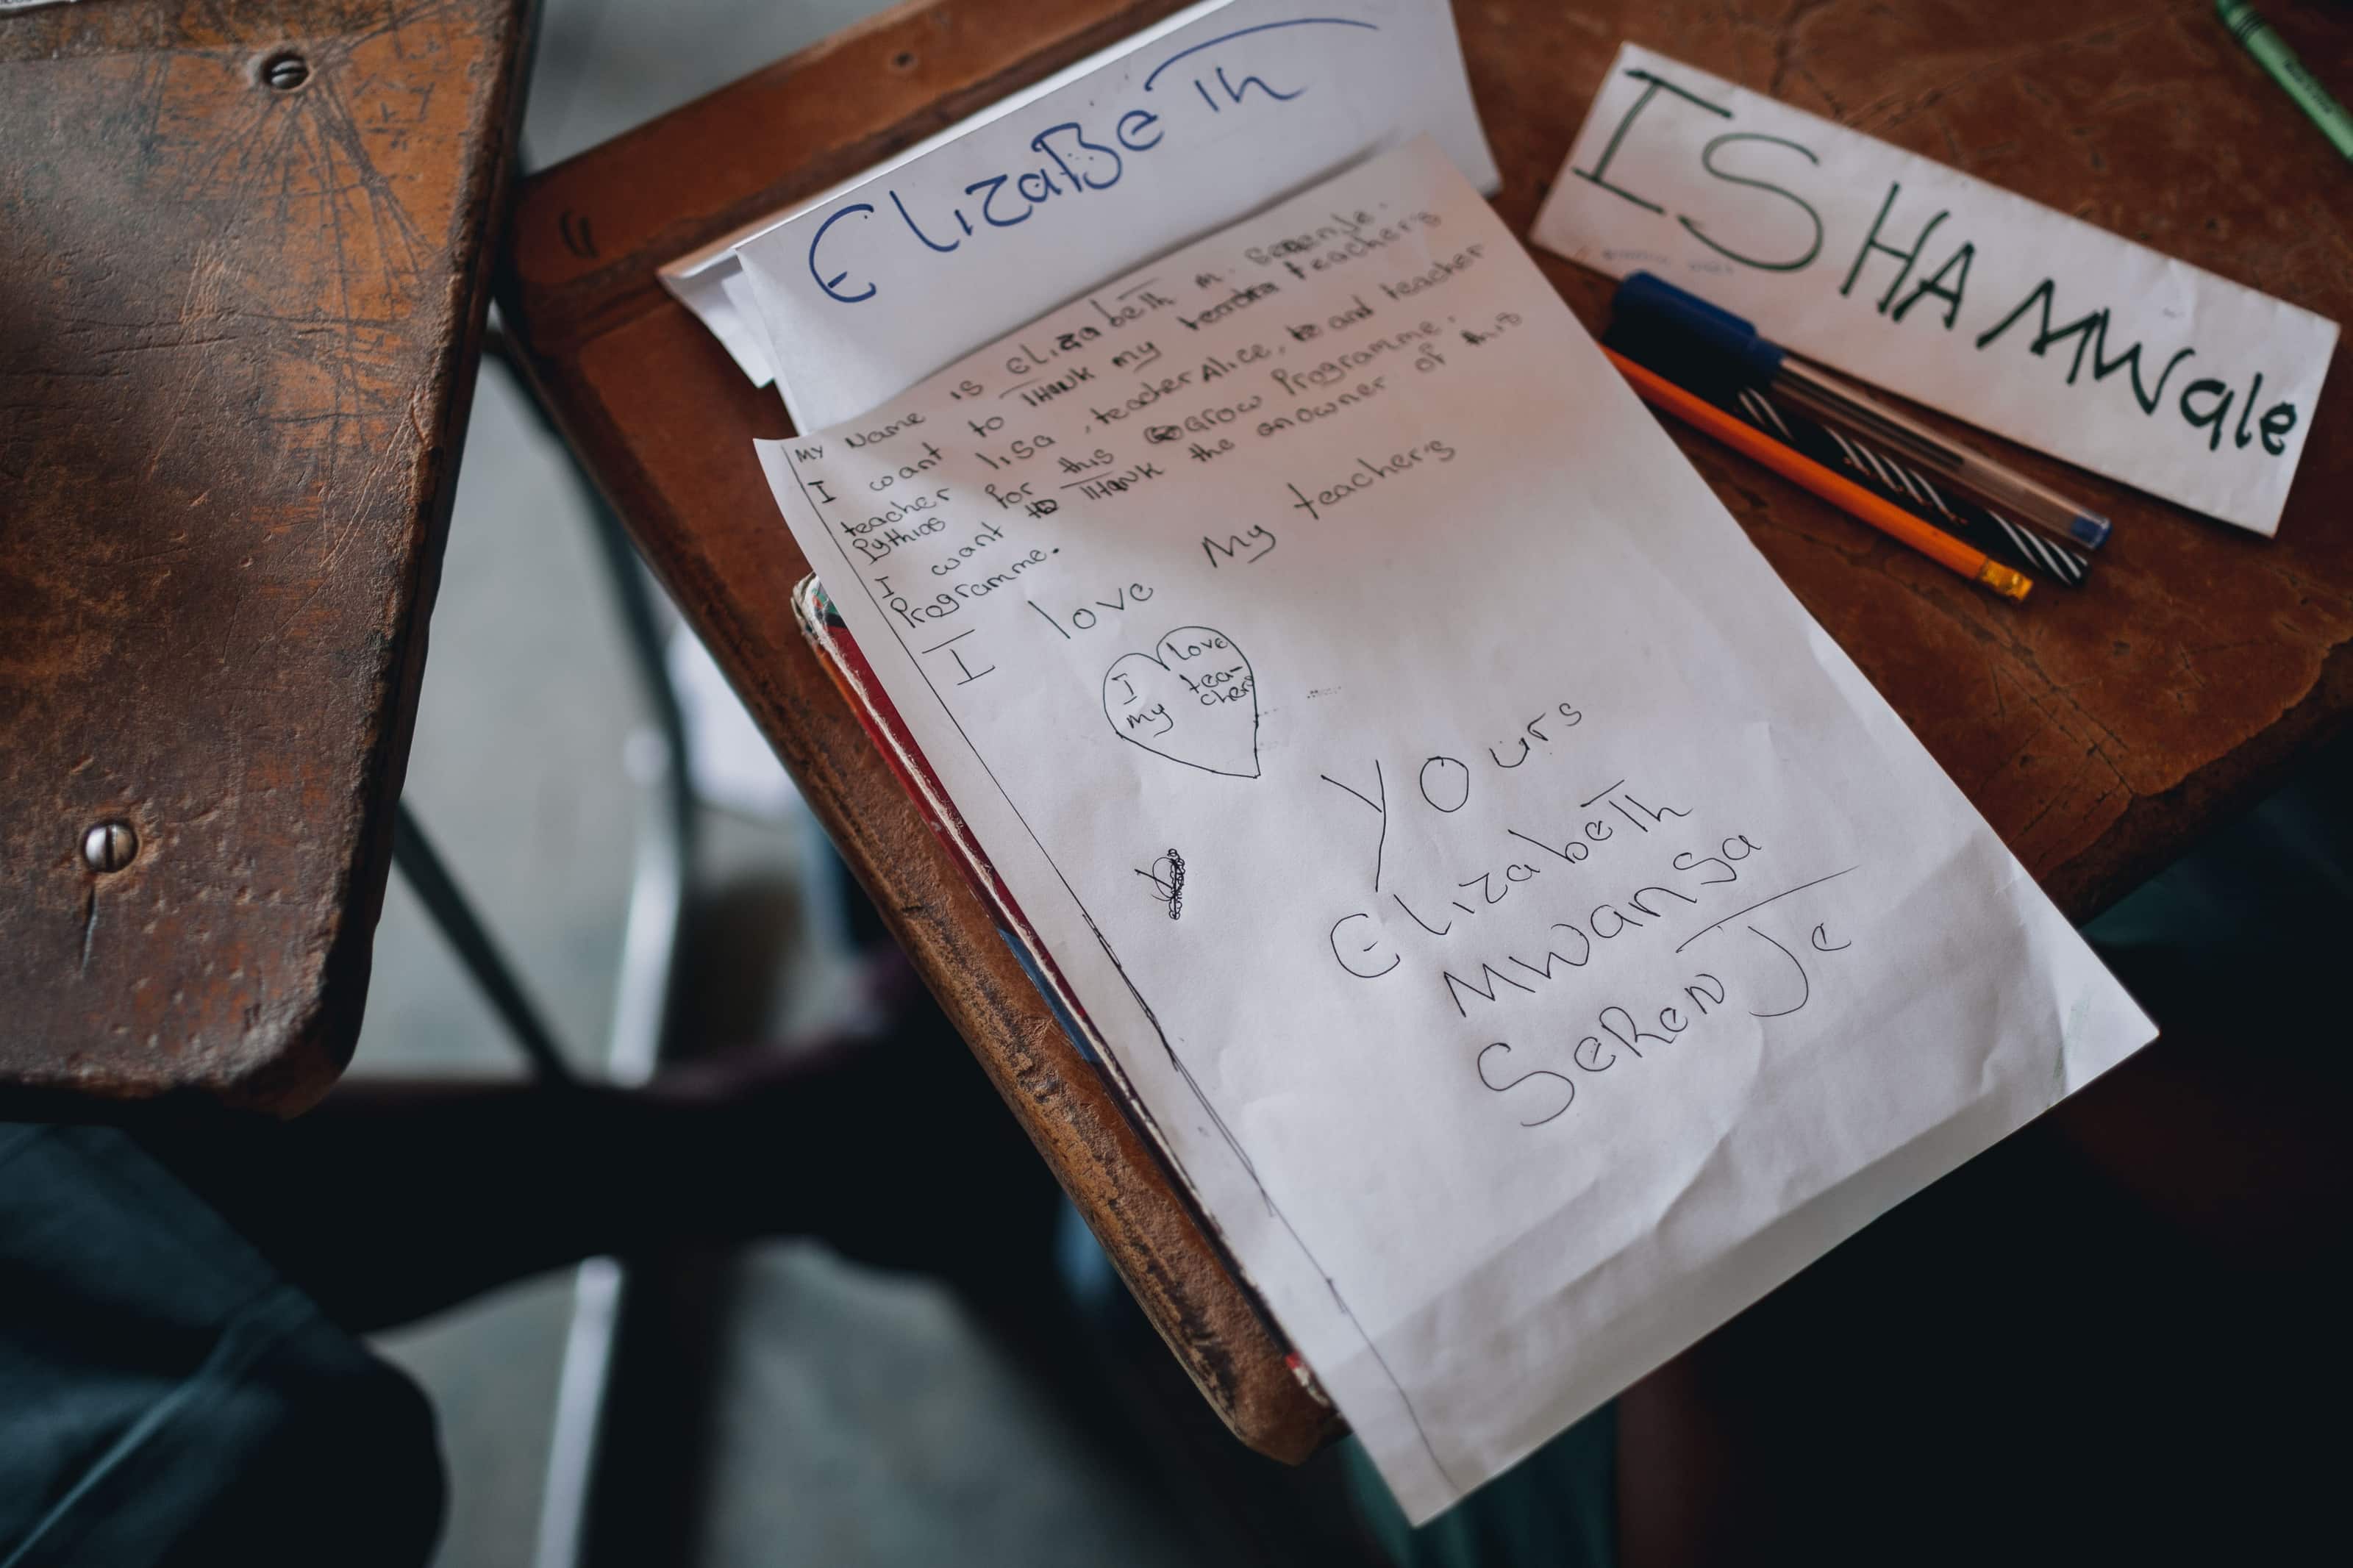 ElizaBeth
ISHAMWale
My Name is elizabeth m. Serenje.
I want to THANK my teachers
teacher lisa, teacher Alice, and teacher
Pythias for this Grow Programme.
I want to THANK the owner of this
Programme.
I love My teachers
I love
my tea-
chers
yours
Elizabeth
Mwansa
SeRenJe